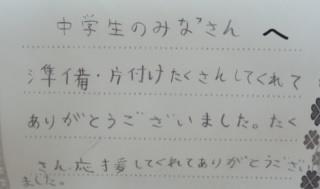 中学生のみなさんへ
準備・片付けたくさんしてくれて
ありがとうございました。たく
さん応援してくれてありがとうござい
ました。